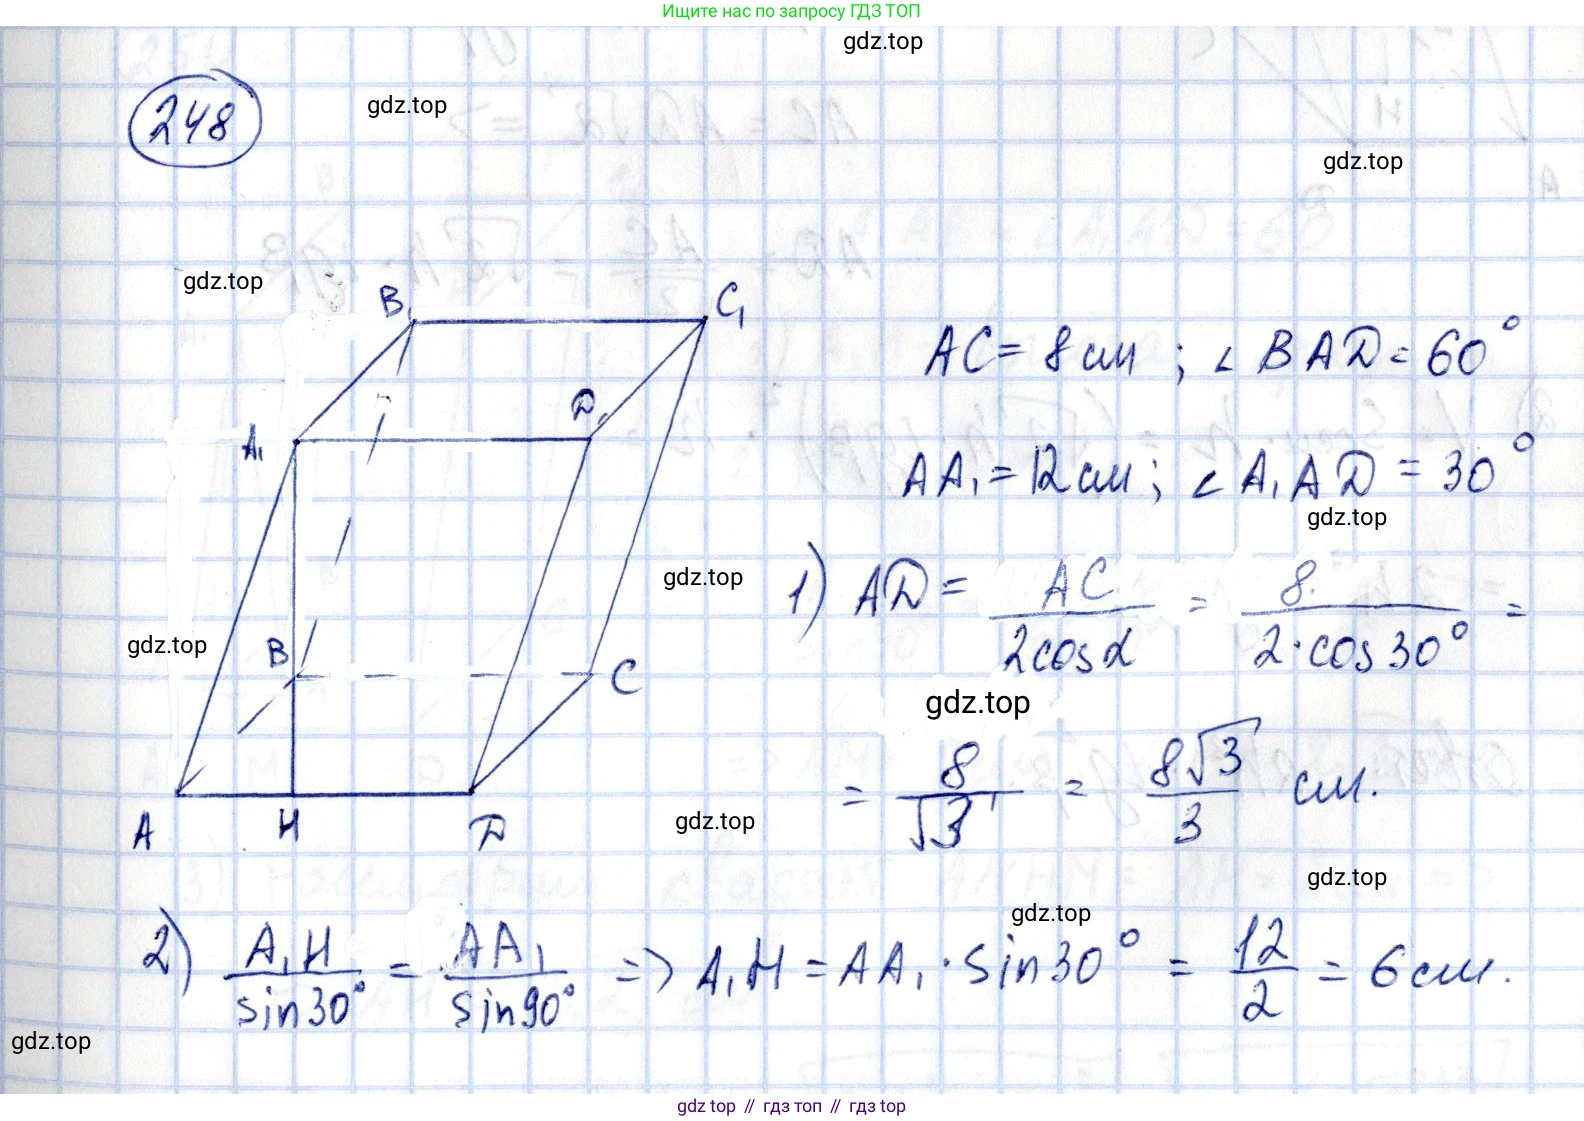 Ищите нас по запросу ГДЗ ТОП
gdz.top
248
gdz.top
gdz.top
gdz.top
B₁
C₁
AC = 8 см ; ∠ BAD = 60°
A₁
D₁
AA₁ = 12 см ; ∠ A₁AD = 30°
gdz.top
gdz.top
1) AD = AC / 2cosα = 8 / 2·cos30° =
gdz.top
B
C
gdz.top
= 8 / √3 = 8√3 / 3 см.
A
H
D
gdz.top
gdz.top
gdz.top
2) A₁H / sin30° = AA₁ / sin90° => A₁H = AA₁ · sin30° = 12 / 2 = 6 см.
gdz.top
gdz top // гдз топ // гдз top